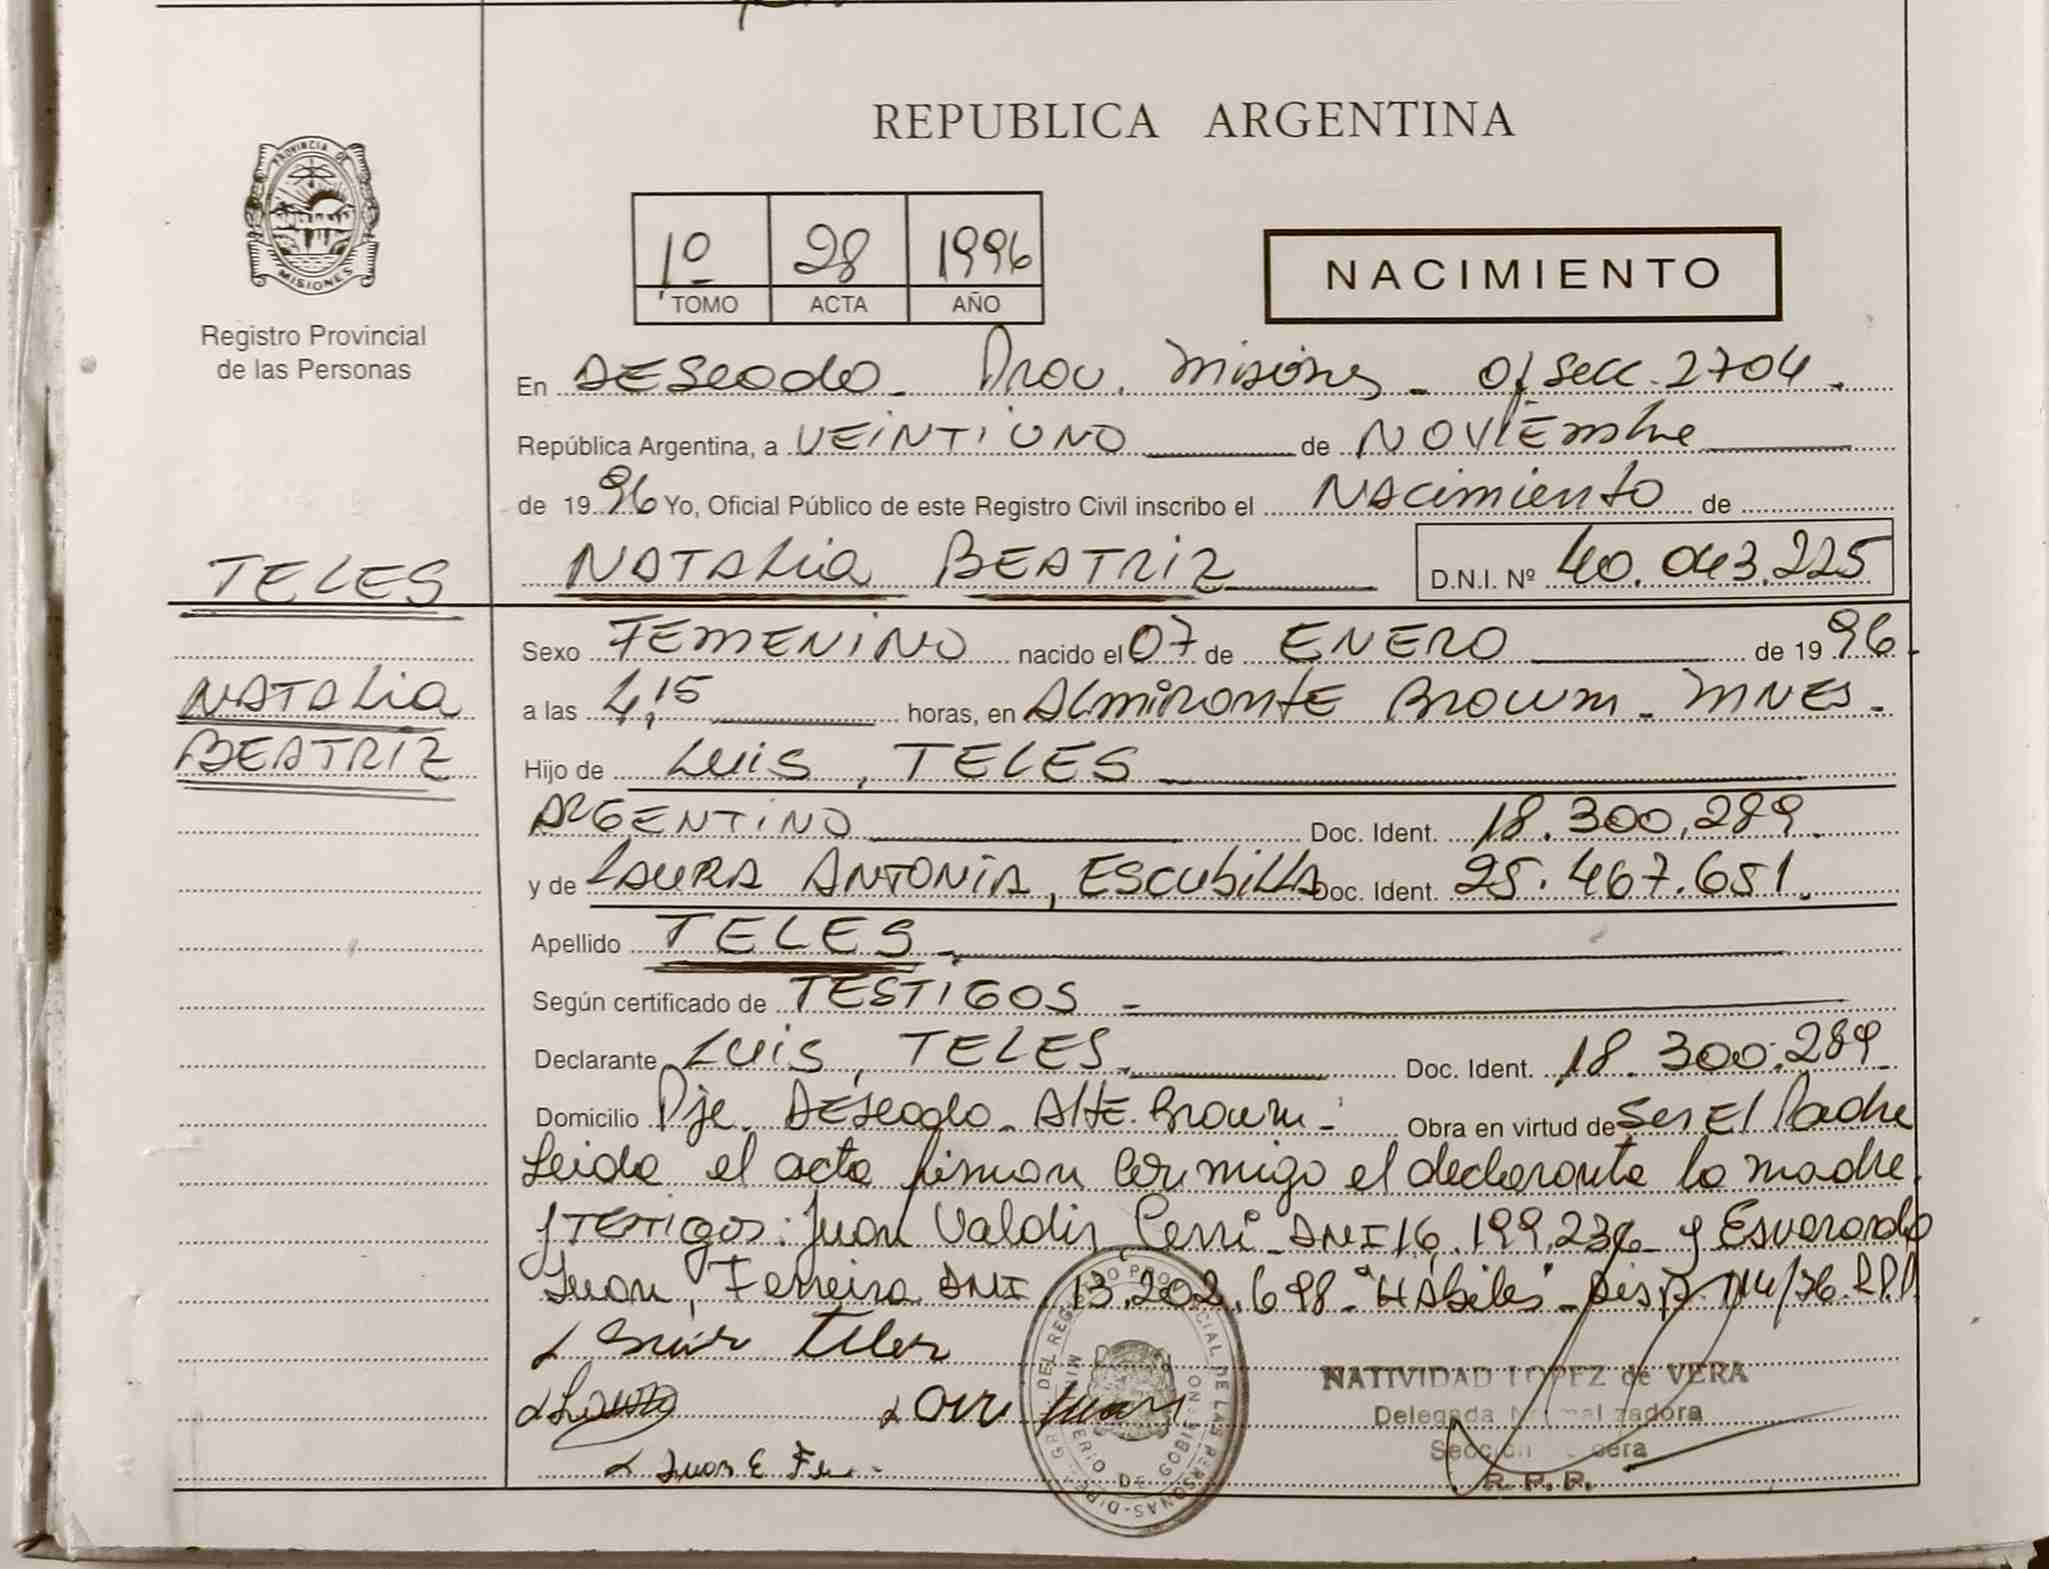 REPUBLICA ARGENTINA
PROVINCIA DE MISIONES
Registro Provincial
de las Personas
1º 28 1996
TOMO ACTA AÑO
NACIMIENTO
En DESEADO - Prov. Misiones - Of Secc. 2704.
República Argentina, a VEINTIUNO de NOVIEmbre
de 1996 Yo, Oficial Público de este Registro Civil inscribo el NAcimiento de
TELES
NATALia BEATRIZ D.N.I. Nº 40.043.225
Sexo FEMENINO nacido el 07 de ENERO de 1996.
NATALia
a las 4,15 horas, en ALmiranTE Brown - MNES -
BEATRIZ
Hijo de Luis, TELES
ARGENTINO Doc. Ident. 18.300.289.
y de LAURA ANTONIA, ESCubiLLA Doc. Ident. 25.467.651.
Apellido TELES -
Según certificado de TESTIGOS -
Declarante Luis, TELES. Doc. Ident. 18.300.289
Domicilio Pje. DESeado - AltE. Brown - Obra en virtud de Ser El Padre
Leida el acta firman conmigo el declarante la madre
y TESTigos: Juan Valdir DNI 16.199.236 y
Juan, Ferreira DNI 13.202.698 - "Hábiles" - Disp. 114/76. R.P.P.
Luis Teles
Laura
Juan
Juan E Fe
DIREC. GRAL. DEL REGISTRO PROVINCIAL DE LAS PERSONAS
MINISTERIO DE GOBIERNO
NATIVIDAD LOPEZ de VERA
Delegada Normalizadora
R. P. P.